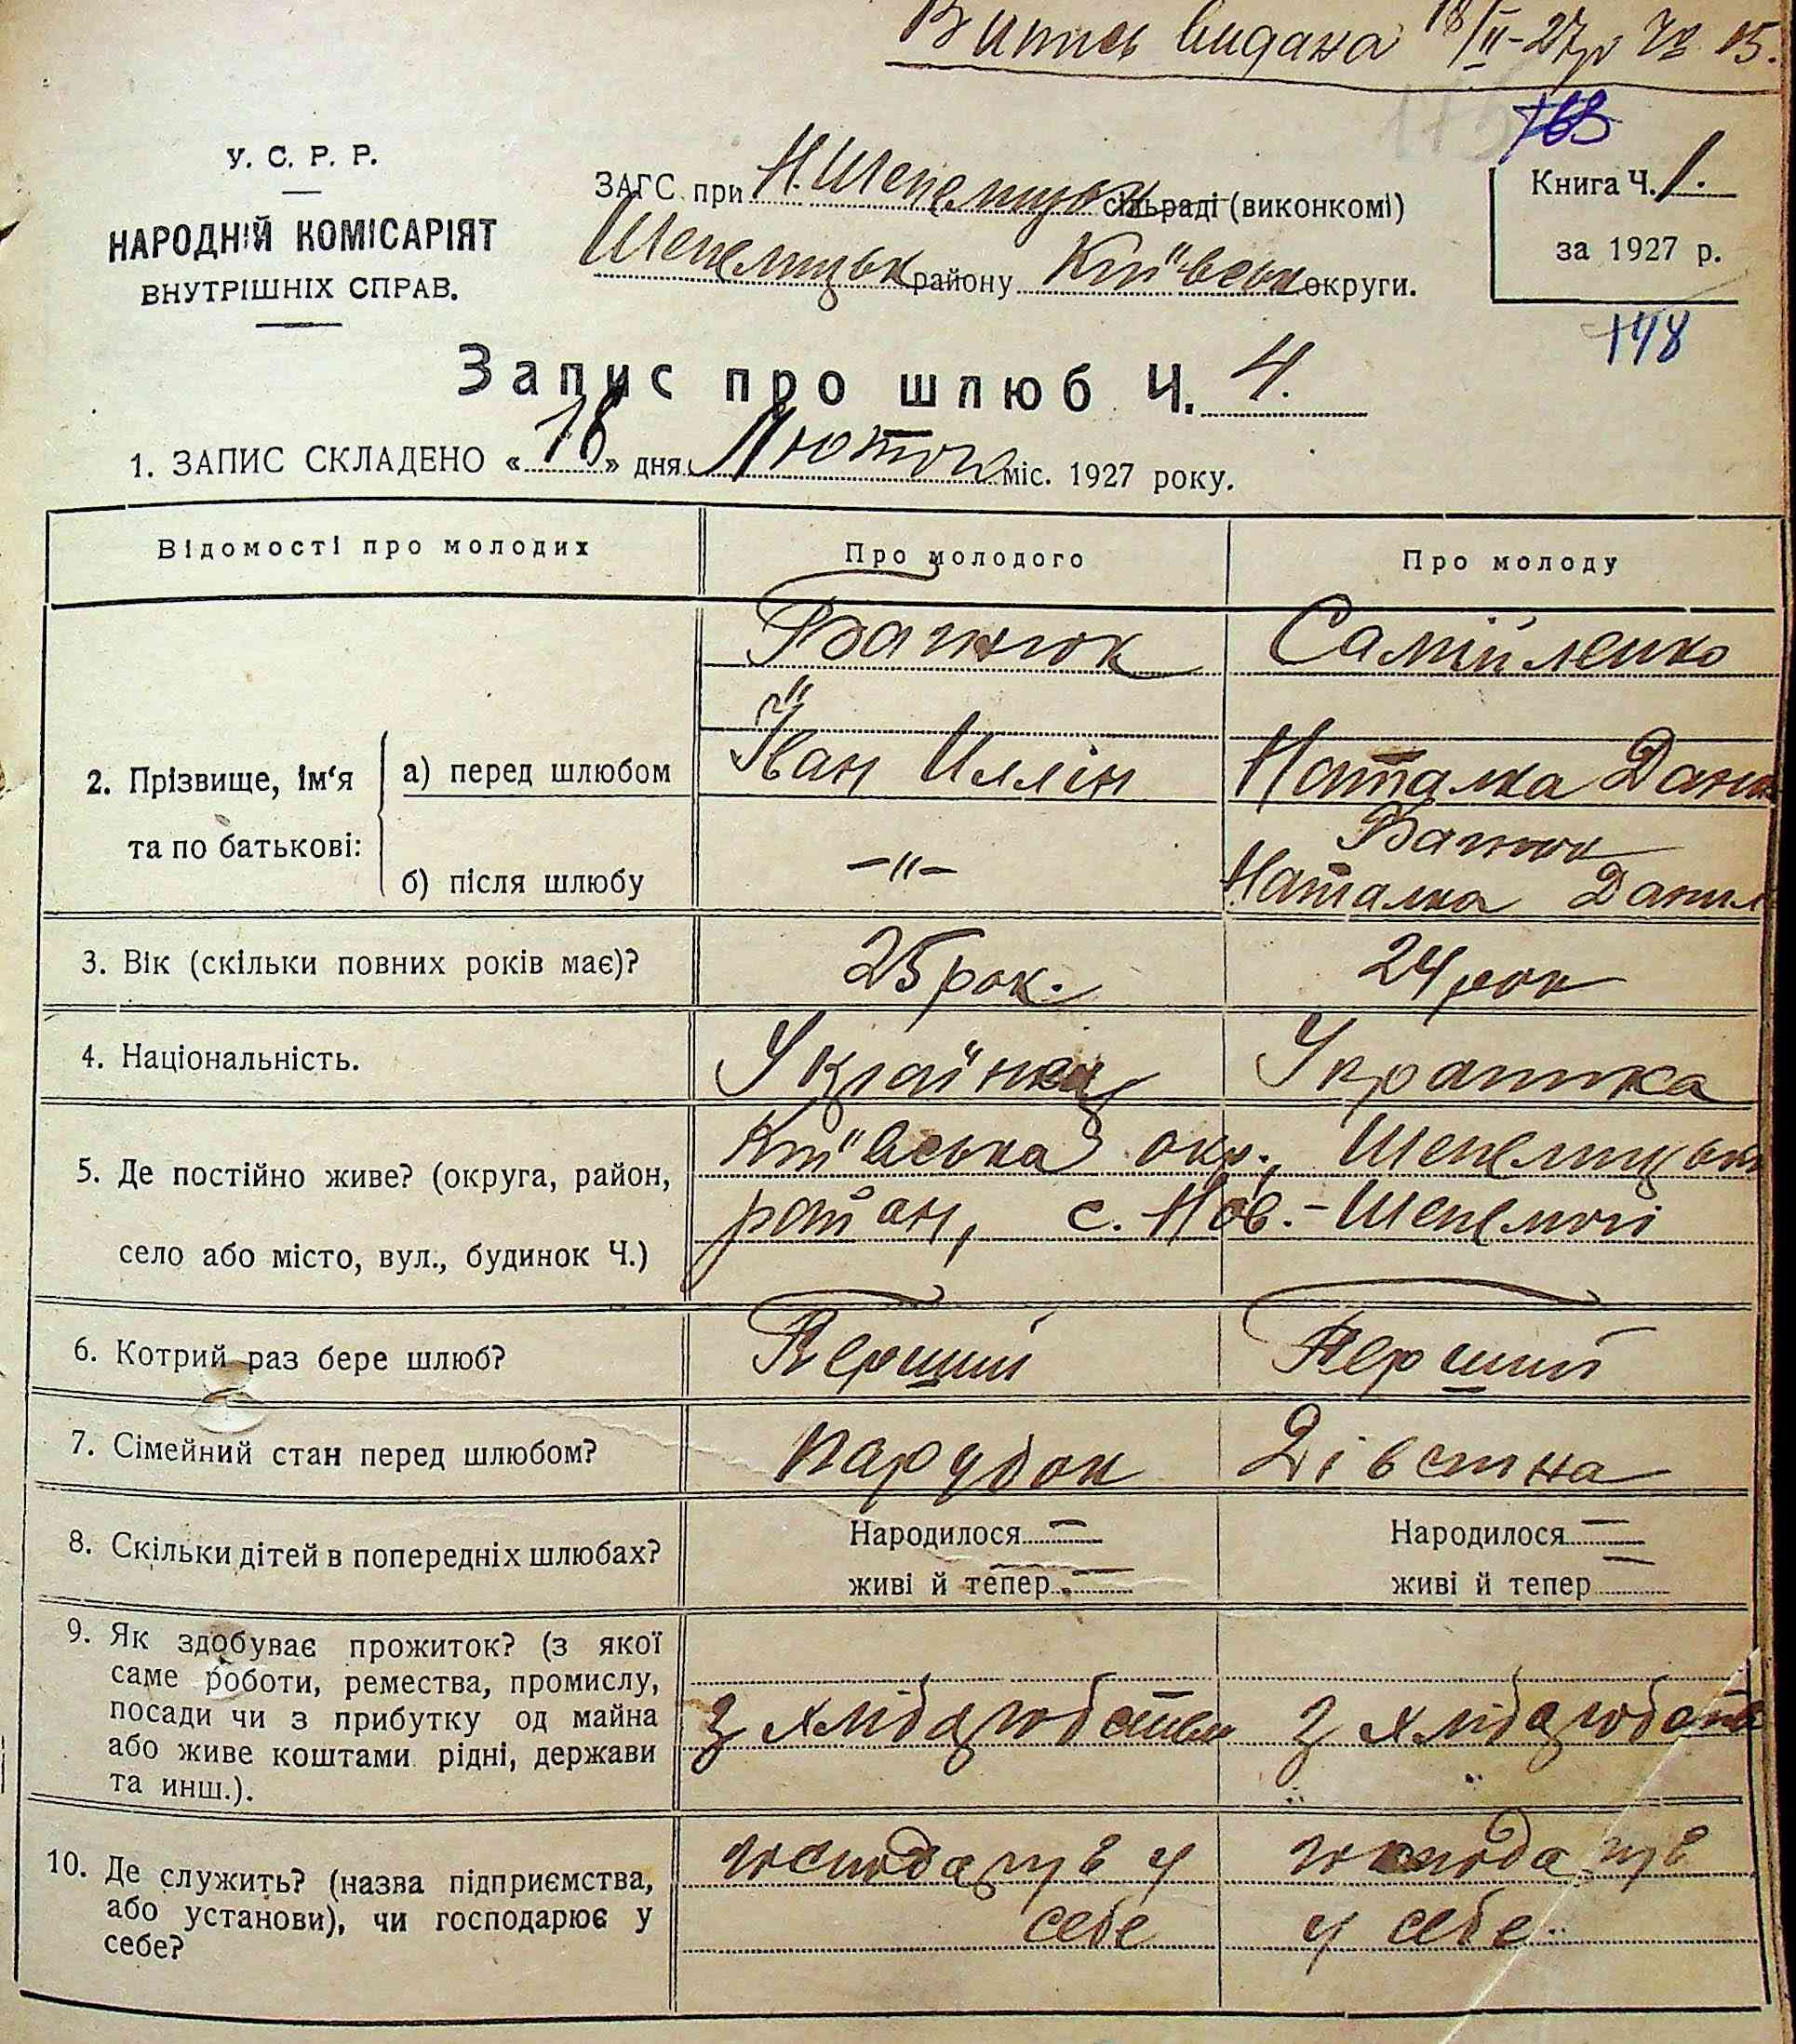 Випись видана 18/II-27р № 15.
163
У. С. Р. Р.
НАРОДНІЙ КОМІСАРІЯТ
ВНУТРІШНІХ СПРАВ.
ЗАГС при Н.Шепелицьк сільраді (виконкомі)
Шепелицьк району Київськ округи.
Книга Ч. 1.
за 1927 р.
148
Запис про шлюб Ч. 4.
1. ЗАПИС СКЛАДЕНО «18» дня Лютого міс. 1927 року.
Відомості про молодих Про молодого Про молоду
2. Прізвище, ім'я та по батькові:
а) перед шлюбом
Самійленко
Іван Иллін Наталка Данил
б) після шлюбу
-"-
Наталка Данил
3. Вік (скільки повних років має)? 25 рок. 24 рок
4. Національність. Українец Украинка
5. Де постійно живе? (округа, район,
село або місто, вул., будинок Ч.)
Київська окр., Шепелицьки
район, с. Нов.-Шепеличі
6. Котрий раз бере шлюб? Перший Перший
7. Сімейний стан перед шлюбом? парубок Дівчина
8. Скільки дітей в попередніх шлюбах?
Народилося — Народилося —
живі й тепер — живі й тепер —
9. Як здобуває прожиток? (з якої
саме роботи, ремества, промислу,
посади чи з прибутку од майна
або живе коштами рідні, держави
та инш.).
З хлібаробства З хлібаробств
10. Де служить? (назва підприємства,
або установи), чи господарює у
себе?
у
себе у себе